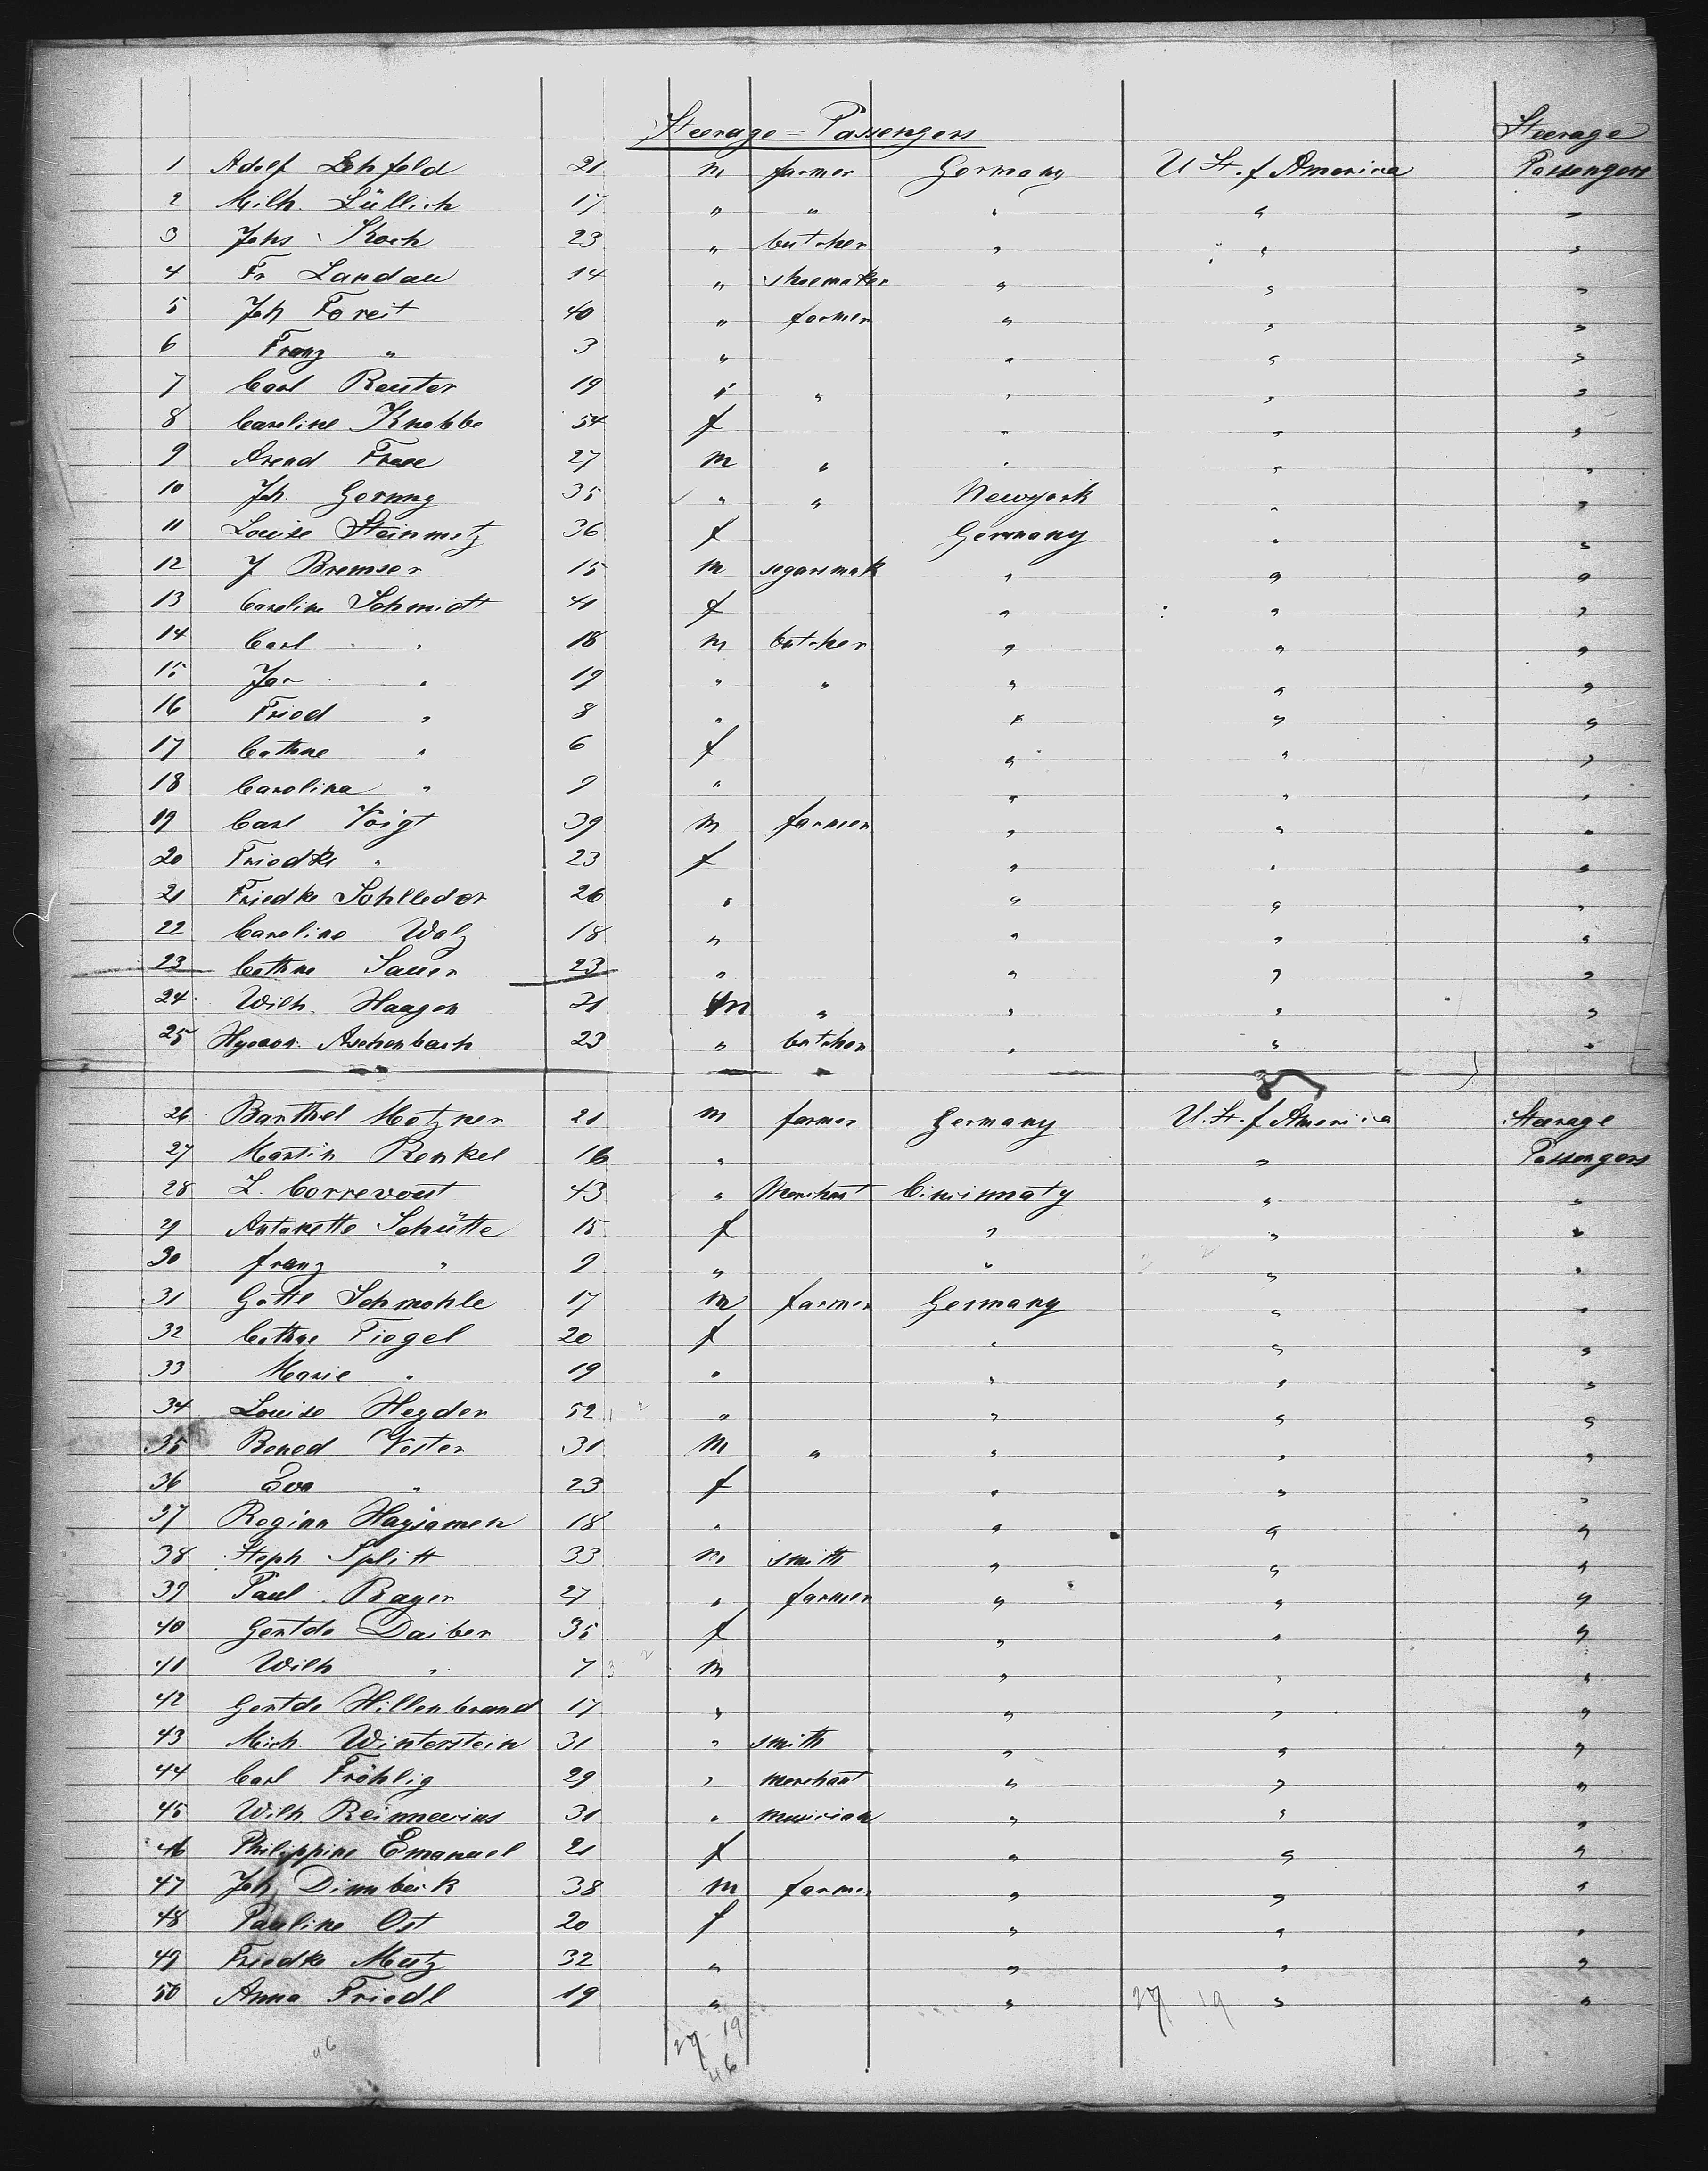 Steerage = Passengers Steerage
1 Adolf Lehfeld 21 m farmer Germany U St. f America Passengers
2 Milh. Lüllich 17 " " " " "
3 Johs Koch 23 " butcher " " "
4 Fr Landau 14 " shoemaker " " "
5 Joh Foreit 40 " farmer " " "
6 Franz " 3 " " " "
7 Carl Reuter 19 " " " " "
8 Caroline Knobbe 54 f " " "
9 Arend Frese 27 m " " " "
10 Joh. Gerung 35 " " Newyork " "
11 Louise Steinmetz 36 f Germany " "
12 J Bremser 15 m segarsmak " " "
13 Caroline Schmidt 41 f " " "
14 Carl " 18 m butcher " " "
15 Jac " 19 " " " " "
16 Fried " 8 " " " "
17 Cathne " 6 f " " "
18 Carolina " 9 " " " "
19 Carl Voigt 39 m farmer " " "
20 Friedke " 23 f " " "
21 Friedke Sohlleder 26 " " " "
22 Caroline Walz 18 " " " "
23 Cathne Sauer 23 " " " "
24 Wilh. Haagen 21 m " " " "
25 Aschenbach 23 " butcher " " "
26 Barthel Metzner 21 m farmer Germany U. St. f America Steerage
27 Martin Renkel 16 " " Passengers
28 L. Correvont 43 " Merchant Cincinnaty " "
29 Antonette Schütte 15 f " " "
30 franz " 9 " " " "
31 Gottl Schmohle 17 m farmer Germany " "
32 Cathne Fiegel 20 f " " "
33 Marie " 19 " " " "
34 Louise Heyder 52 " " " "
35 Bened Vester 31 m " " " "
36 Eva " 23 f " " "
37 Regina Haysamen 18 " " " "
38 Steph. Splitt 33 m smith " " "
39 Paul Bayer 27 " farmer " " "
40 Gertde Daiber 35 f " " "
41 Wilh " 7 m " " "
42 Gertde Hillenbrand 17 " " " "
43 Mich. Winterstein 31 " smith " " "
44 Carl Fröhlig 29 " merchant " " "
45 Wilh. 31 " musician " " "
46 Philippine Emanuel 21 f " " "
47 Joh. Dimmbeck 38 m farmer " " "
48 Pauline Ost 20 f " " "
49 Friedke Meutz 32 " " " "
50 Anna Friedl 19 " " 27 19 " "
46 27 - 19
46